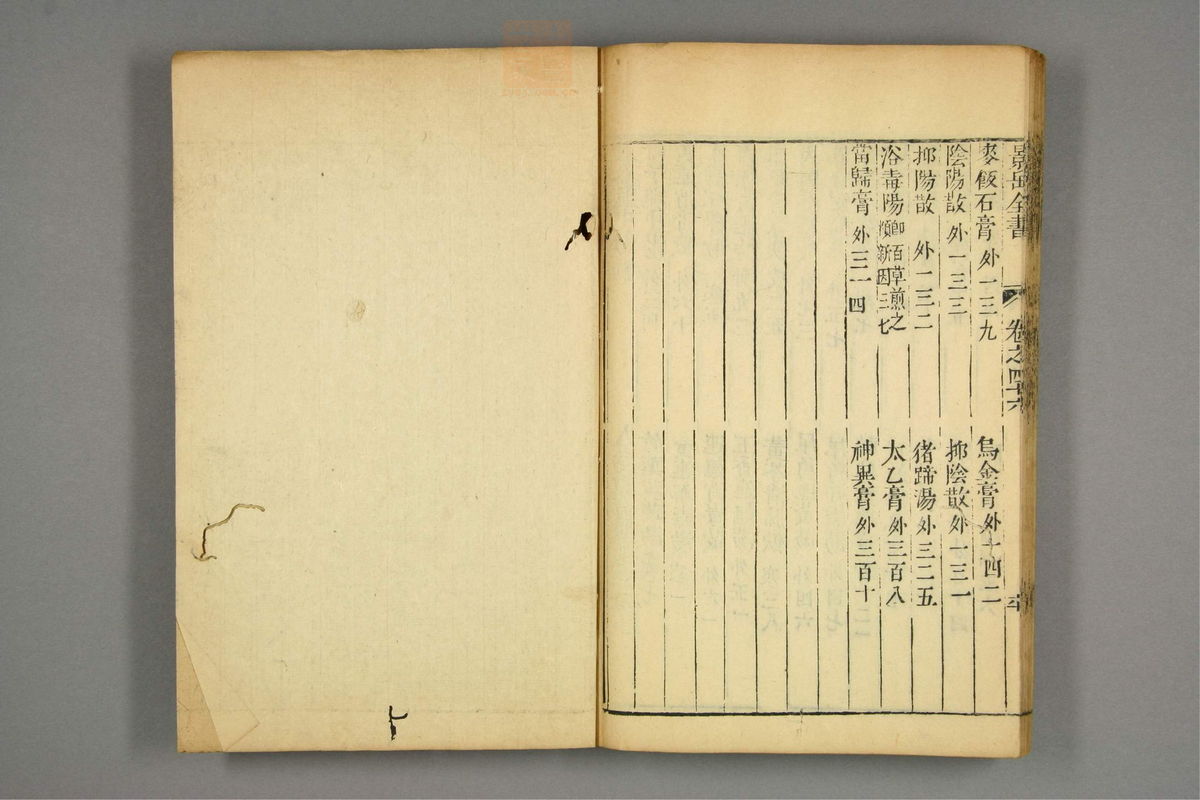 景岳全書 卷之四十六
麥飯石膏 外一三九
烏金膏 外十四二
陰陽散 外一三三
抑陰散 外一三一
抑陽散 外一三二
猪蹄湯 外三二五
浴毒陽 卽百草煎之類新因三七
太乙膏 外三百八
當歸膏 外三一四
神異膏 外三百十